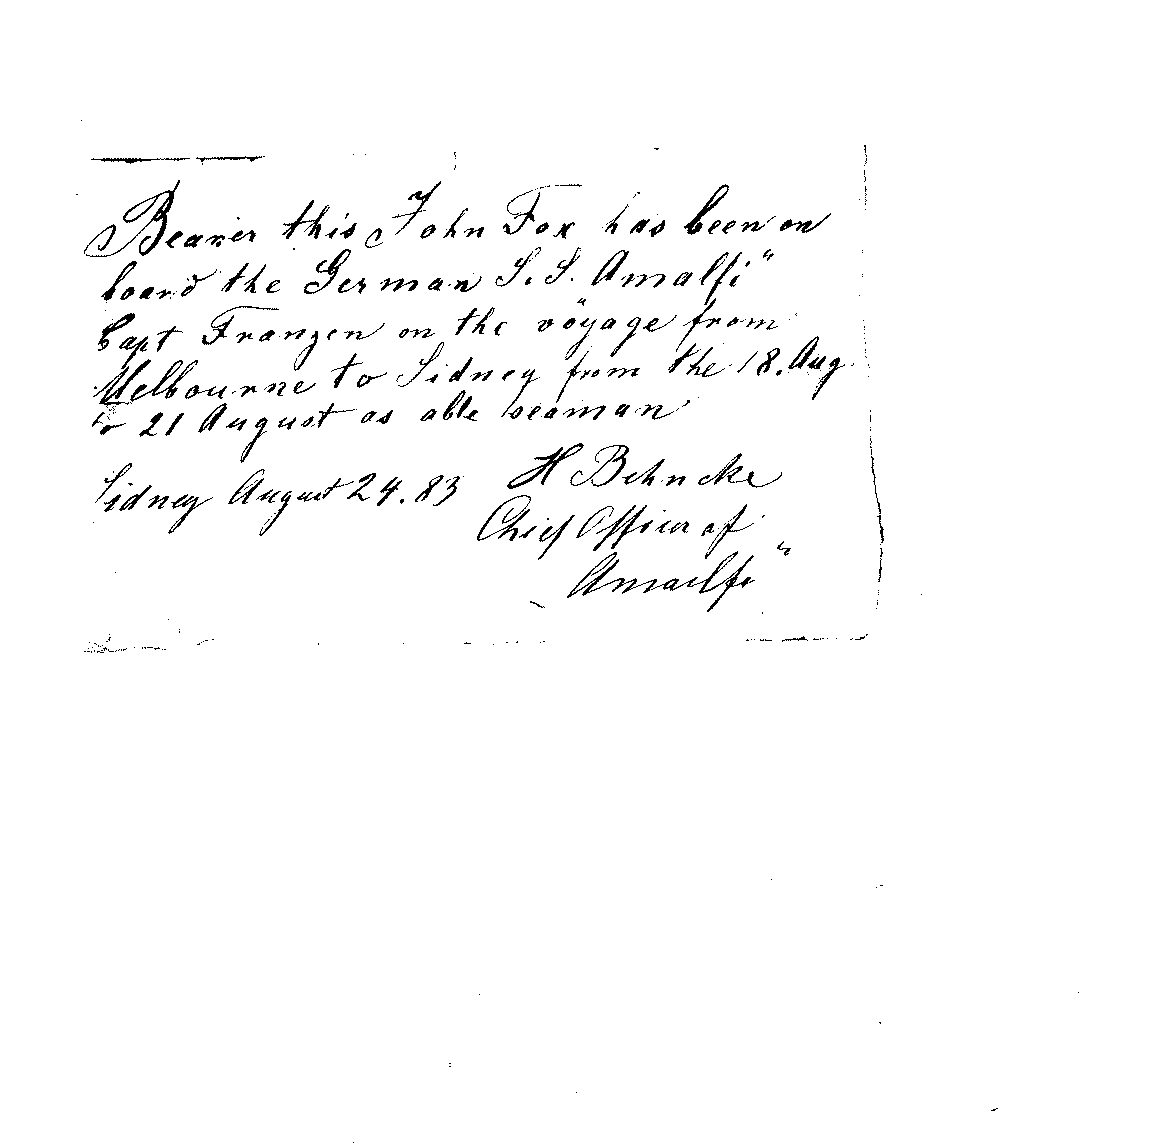 Bearer this John Fox has been on
board the German S. S. Amalfi"
Capt Franzen on the voÿage from
Melbourne to Sidney from the 18. Aug
to 21 August as able seaman
Sidney August 24. 83 H Behncke
Chief Officer of
Amalfi"